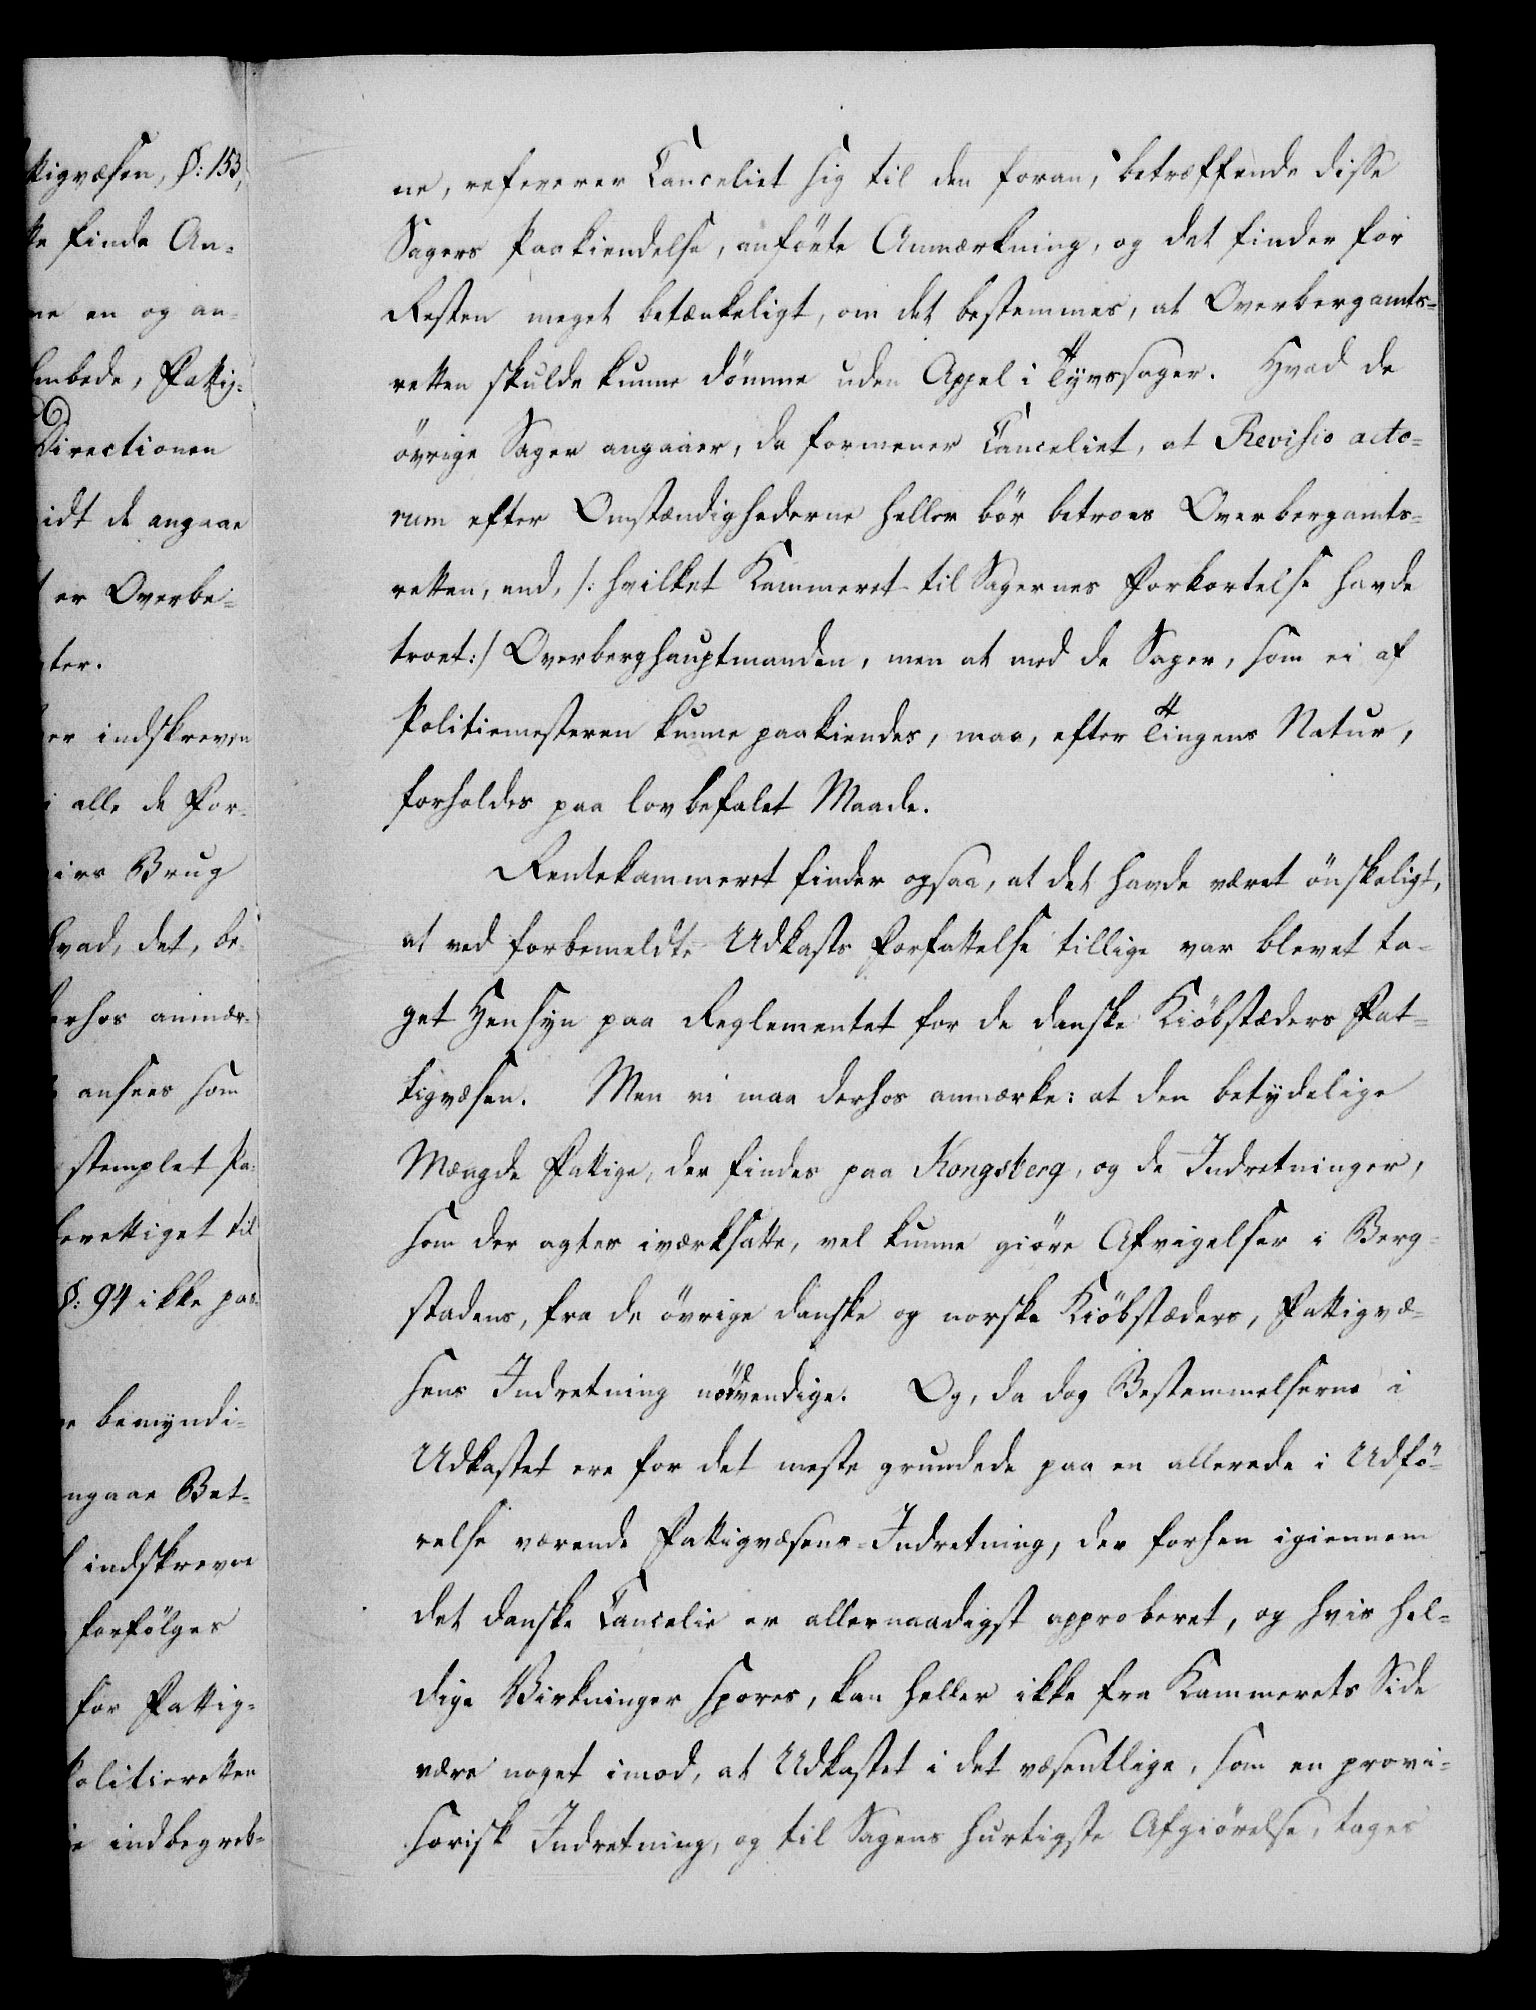 ttigvæsen, §: 153,
ke finde An-
ne en og an-
Embede, Fattig-
Directionen
idt de angaae
er Overbe-
ter.
er indskreven
i alle de For-
irs Brug
hvad, det, be-
erhos anmær-
ansees som
stemplet Pa-
berettiget til
§: 94 ikke pas-
e bemyndi-
ngaae Bet-
indskrevne
forfölges
for Fattig-
Politieretten
e indbegreb-
ne, refererer Cancelliet sig til den foran, betræffende disse
Sagers Paakiendelse, anförte Anmærkning, og det finder for
Resten meget betænkeligt, om det bestemmes, at Overbergamts-
retten skulde kunne dömme uden Appel i Tyvssager. Hvad de
övrige Sager angaaer, da formener Cancelliet, at Revisio acto-
rum efter Omstændighederne heller bör betroes Overbergamts-
retten, end, /: hvilket Kammeret til Sagernes Forkortelse havde
troet :/ Overberghauptmanden, men at med de Sager, som ei af
Politiemesteren kunne paakiendes, maa, efter Tingens Natur,
forholdes paa lovbefalet Maade.
Rentekammeret finder ogsaa, at det havde været önskeligt,
at ved forbemeldte Udkasts Forfattelse tillige var blevet ta-
get Hensyn paa Reglementet for de danske Kiöbstæders Fat-
tigvæsen. Men vi maa derhos anmærke: at den betydelige
Mængde Fattige, der findes paa Kongsberg, og de Indretninger,
som der agtes iværksatte, vel kunne giöre Afvigelser i Berg-
stadens, fra de övrige danske og norske Kiöbstæders, Fattigvæ-
sens Indretning nödvendige. Og, da dog Bestemmelserne i
Udkastet ere for det meste grundede paa en allerede i Udfö-
relse værende Fattigvæsens-Indretning, der forhen igiennem
det danske Cancelie er allernaadigst approberet, og hvis hel-
dige Virkninger spores, kan heller ikke fra Kammerets Side
være noget imod, at Udkastet i det væsentlige, som en provi-
sorisk Indretning, og til Sagens hurtigste Afgiörelse, tages